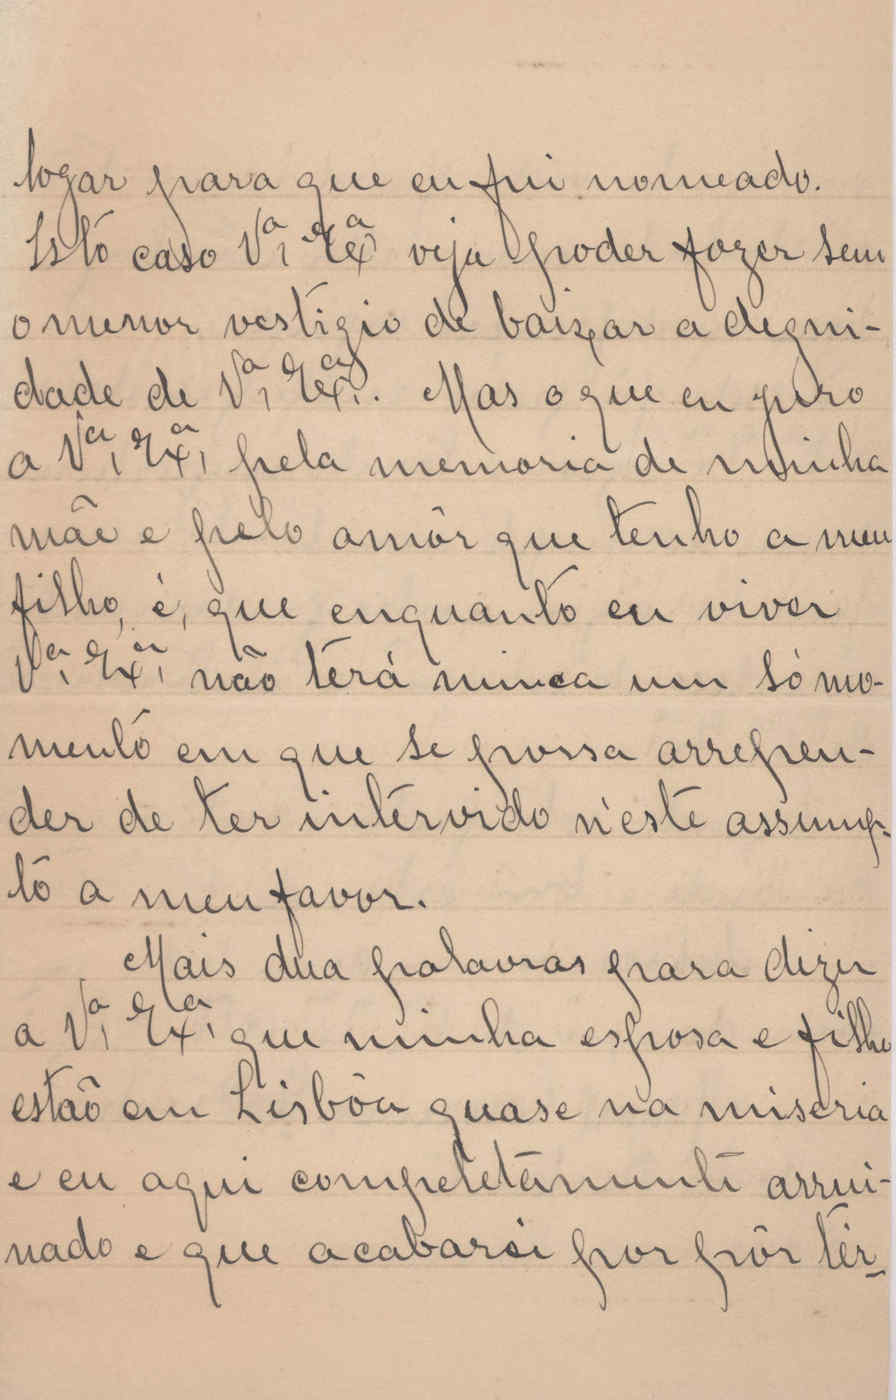 logar para que eu fui nomeado.
Isto caso Vª, Exª veja poder fazer sem
o menor vestigio de baixar a degni-
dade de Vª, Exª,. Mas o que eu juro
a Vª, Exª, pela memoria de minha
mãe e pelo amôr que tenho a meu
filho, é, que enquanto eu viver
Vª, Exª, não terá nunca um só mo-
mento em que se possa arrepen-
der de ter intervido n'este assump-
to a meu favor.
Mais dua palavras para dizer
a Vª, Exª, que minha esposa e filho
estão em Lisbôa quase na miseria
e eu aqui completamente arrui-
nado e que acabarei por pôr têr-